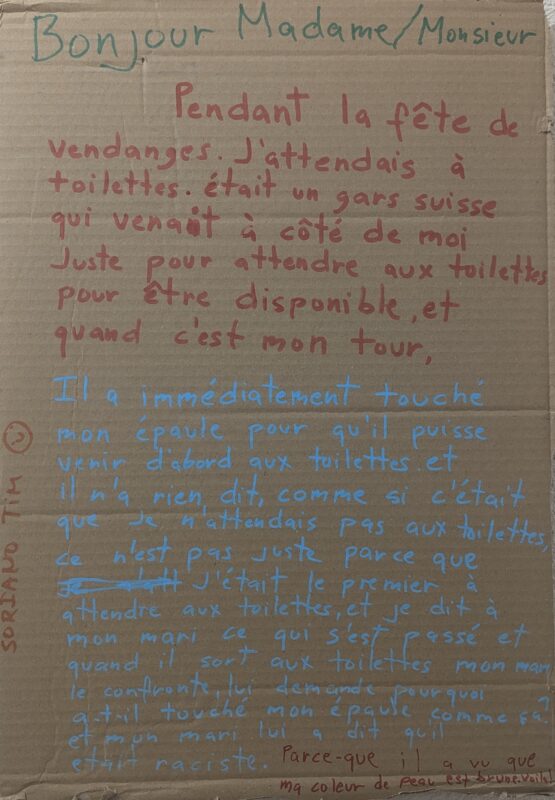 Bonjour Madame/Monsieur
Pendant la fête de
vendanges. J'attendais à
toilettes. était un gars suisse
qui venait à côté de moi
Juste pour attendre aux toilettes
pour être disponible, et
quand c'est mon tour,
Il a immédiatement touché
mon épaule pour qu'il puisse
venir d'abord aux toilettes. et
il n'a rien dit, comme si c'était
que je n'attendais pas aux toilettes,
ce n'est pas juste parce que
J'était le premier à
attendre aux toilettes, et je dit à
mon mari ce qui s'est passé et
quand il sort aux toilettes mon mari
le confronte, lui demande pourquoi
a-t-il touché mon épaule comme sa
et mon mari lui a dit qu'il
était raciste. Parce-que il a vu que
ma coleur de peau est brune. voilà
SORIANO TIM